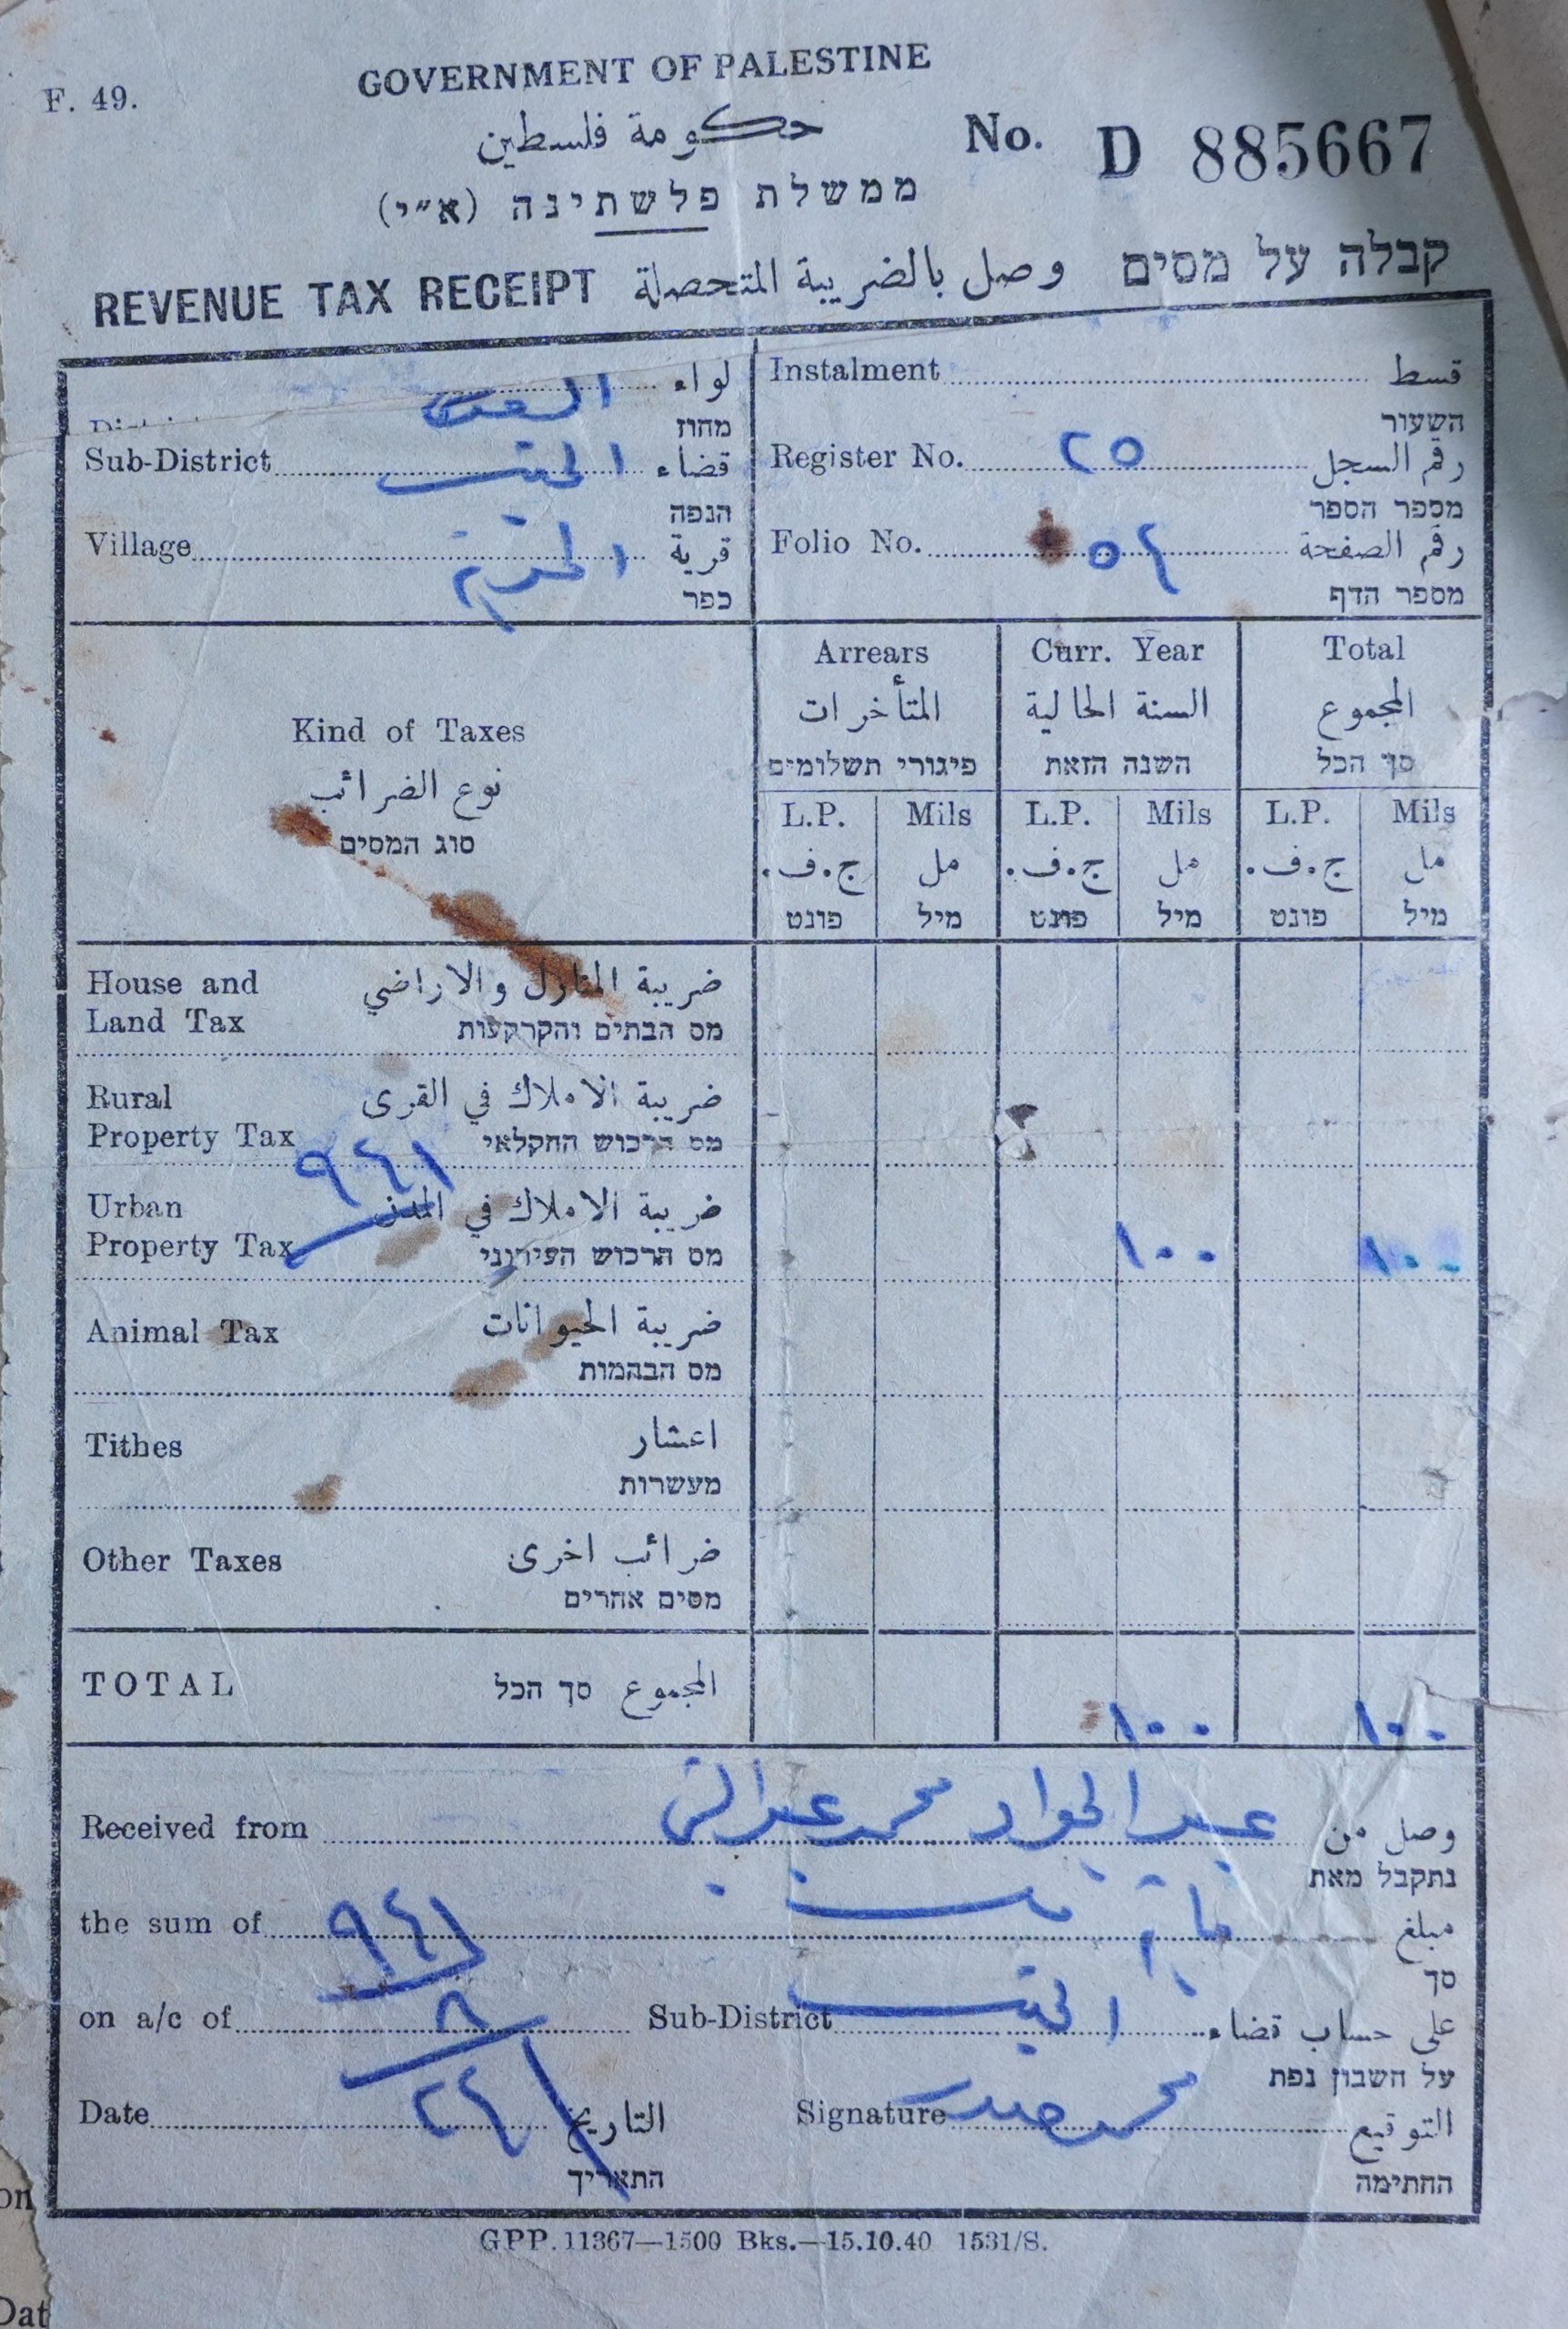 F. 49.
GOVERNMENT OF PALESTINE
حكومة فلسطين
No. D 885667
ממשלת פלשתינה (א״י)
REVENUE TAX RECEIPT وصل بالضريبة المتحصلة קבלה על מסים
لواء
מחוז
Sub-District قضاء
הנפה
Village قرية
כפר
Instalment قسط
השעור
Register No. ٢٥ رقم السجل
מספר הספר
Folio No. ٥٤ رقم الصفحة
מספר הדף
Kind of Taxes
نوع الضرائب
סוג המסים
Arrears Curr. Year Total
المتأخرات السنة الحالية المجموع
פיגורי תשלומים השנה הזאת סך הכל
L.P. Mils L.P. Mils L.P. Mils
ج.ف. مل ج.ف. مل ج.ف. مل
פונט מיל פונט מיל פונט מיל
House and ضريبة المنازل والاراضي
Land Tax מס הבתים והקרקעות
Rural ضريبة الاملاك في القرى
Property Tax מס הרכוש החקלאי
٩٤١
Urban ضريبة الاملاك في المدن
Property Tax מס הרכוש העירוני ١٠٠ ١٠٠
Animal Tax ضريبة الحيوانات
מס הבהמות
Tithes اعشار
מעשרות
Other Taxes ضرائب اخرى
מסים אחרים
TOTAL المجموع סך הכל ١٠٠ ١٠٠
Received from عبد الجواد محمد وصل من
נתקבל מאת
the sum of ٩٤١ مبلغ
סך
on a/c of ٨ Sub-District على حساب قضاء
על חשבון נפת
Date ٢٤ التاريخ Signature محمد التوقيع
התאריך החתימה
GPP. 11367—1500 Bks.—15.10.40 1531/S.
on
Dat